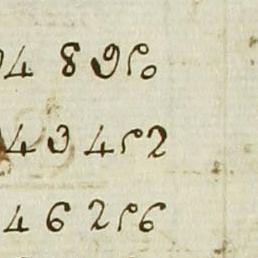 4 8 950
4 3 452
4 6 256